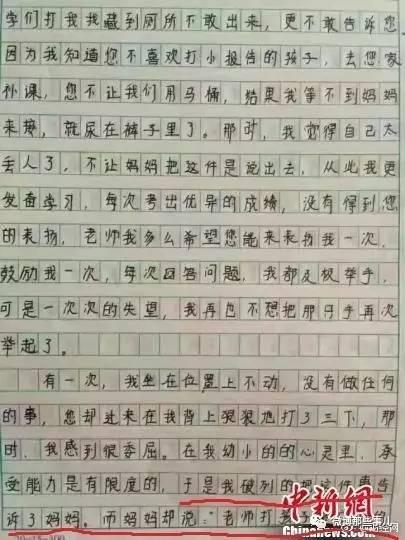 学们打我我藏到厕所不敢出来，更不敢告诉您，
因为我知道您不喜欢打小报告的孩子，去您家
补课，您不让我们用马桶，结果我等不到妈妈
来接，就尿在裤子里了。那时，我觉得自己太
丢人了，不让妈妈把这件是说出去，从此我更
发奋学习，每次考出优异的成绩，没有得到您
的表扬，老师我多么希望您能来表扬我一次，
鼓励我一次，每次回答问题，我都极举手，
可是一次次的失望，我再也不想把那只手再次
举起了。
有一次，我坐在位置上不动，没有做任何
的事，您却进来在我背上狠狠地打了三下，那
时，我感到很委屈。在我幼小的的心灵里，承
受能力是有限度的，于是我破列的把这件事告
诉了妈妈。而妈妈却说：“老师打孩子的
中新網